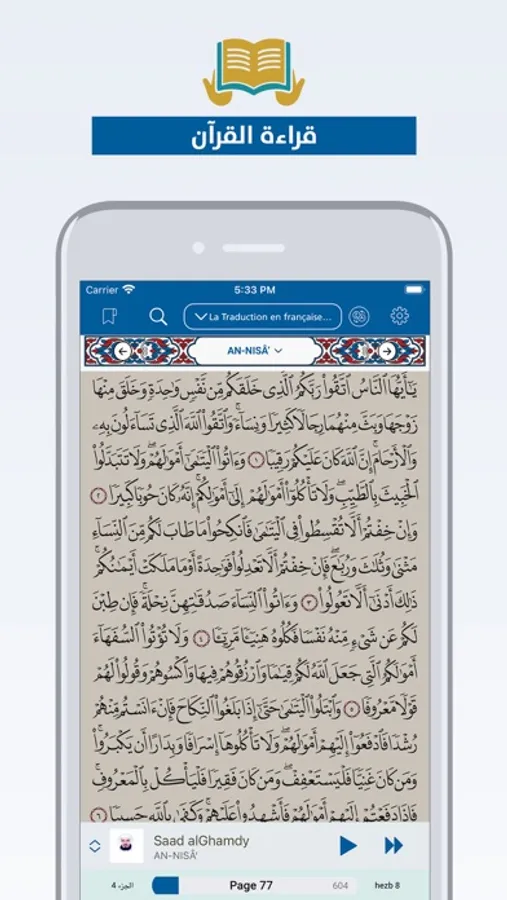 قراءة القرآن
Carrier 5:33 PM
La Traduction en française...
AN-NISÂ'
يَٰٓأَيُّهَا ٱلنَّاسُ ٱتَّقُوا۟ رَبَّكُمُ ٱلَّذِى خَلَقَكُم مِّن نَّفْسٍ وَٰحِدَةٍ وَخَلَقَ مِنْهَا
زَوْجَهَا وَبَثَّ مِنْهُمَا رِجَالًا كَثِيرًا وَنِسَآءً ۚ وَٱتَّقُوا۟ ٱللَّهَ ٱلَّذِى تَسَآءَلُونَ بِهِۦ
وَٱلْأَرْحَامَ ۚ إِنَّ ٱللَّهَ كَانَ عَلَيْكُمْ رَقِيبًا ١ وَءَاتُوا۟ ٱلْيَتَٰمَىٰٓ أَمْوَٰلَهُمْ ۖ وَلَا تَتَبَدَّلُوا۟
ٱلْخَبِيثَ بِٱلطَّيِّبِ ۖ وَلَا تَأْكُلُوٓا۟ أَمْوَٰلَهُمْ إِلَىٰٓ أَمْوَٰلِكُمْ ۚ إِنَّهُۥ كَانَ حُوبًا كَبِيرًا ٢
وَإِنْ خِفْتُمْ أَلَّا تُقْسِطُوا۟ فِى ٱلْيَتَٰمَىٰ فَٱنكِحُوا۟ مَا طَابَ لَكُم مِّنَ ٱلنِّسَآءِ
مَثْنَىٰ وَثُلَٰثَ وَرُبَٰعَ ۖ فَإِنْ خِفْتُمْ أَلَّا تَعْدِلُوا۟ فَوَٰحِدَةً أَوْ مَا مَلَكَتْ أَيْمَٰنُكُمْ ۚ
ذَٰلِكَ أَدْنَىٰٓ أَلَّا تَعُولُوا۟ ٣ وَءَاتُوا۟ ٱلنِّسَآءَ صَدُقَٰتِهِنَّ نِحْلَةً ۚ فَإِن طِبْنَ
لَكُمْ عَن شَىْءٍ مِّنْهُ نَفْسًا فَكُلُوهُ هَنِيٓـًٔا مَّرِيٓـًٔا ٤ وَلَا تُؤْتُوا۟ ٱلسُّفَهَآءَ
أَمْوَٰلَكُمُ ٱلَّتِى جَعَلَ ٱللَّهُ لَكُمْ قِيَٰمًا وَٱرْزُقُوهُمْ فِيهَا وَٱكْسُوهُمْ وَقُولُوا۟ لَهُمْ
قَوْلًا مَّعْرُوفًا ٥ وَٱبْتَلُوا۟ ٱلْيَتَٰمَىٰ حَتَّىٰٓ إِذَا بَلَغُوا۟ ٱلنِّكَاحَ فَإِنْ ءَانَسْتُم مِّنْهُمْ
رُشْدًا فَٱدْفَعُوٓا۟ إِلَيْهِمْ أَمْوَٰلَهُمْ ۖ وَلَا تَأْكُلُوهَآ إِسْرَافًا وَبِدَارًا أَن يَكْبَرُوا۟ ۚ
وَمَن كَانَ غَنِيًّا فَلْيَسْتَعْفِفْ ۖ وَمَن كَانَ فَقِيرًا فَلْيَأْكُلْ بِٱلْمَعْرُوفِ ۚ
فَإِذَا دَفَعْتُمْ إِلَيْهِمْ أَمْوَٰلَهُمْ فَأَشْهِدُوا۟ عَلَيْهِمْ ۚ وَكَفَىٰ بِٱللَّهِ حَسِيبًا ٦
Saad alGhamdy
AN-NISÂ'
الجزء 4 Page 77 604 hezb 8